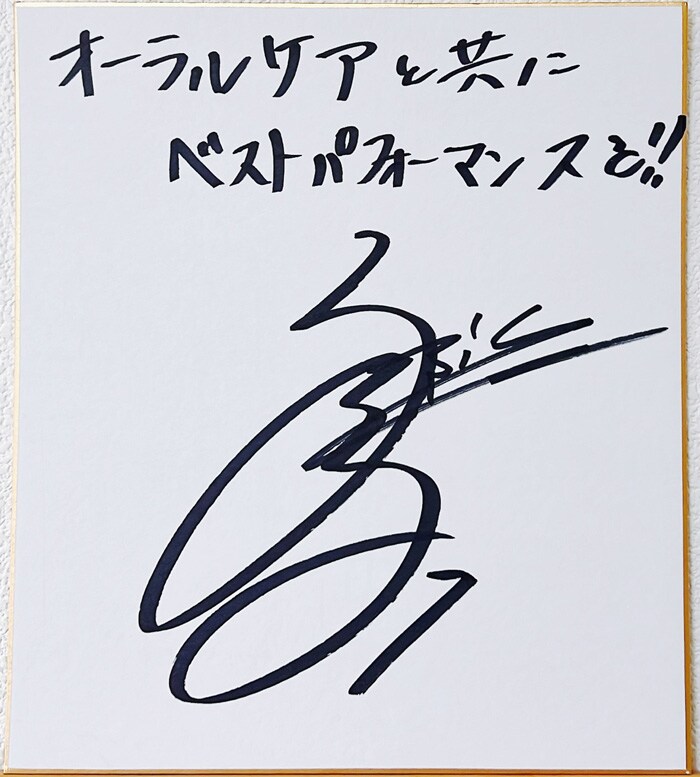 オーラルケアと共に
ベストパフォーマンスを!!
7